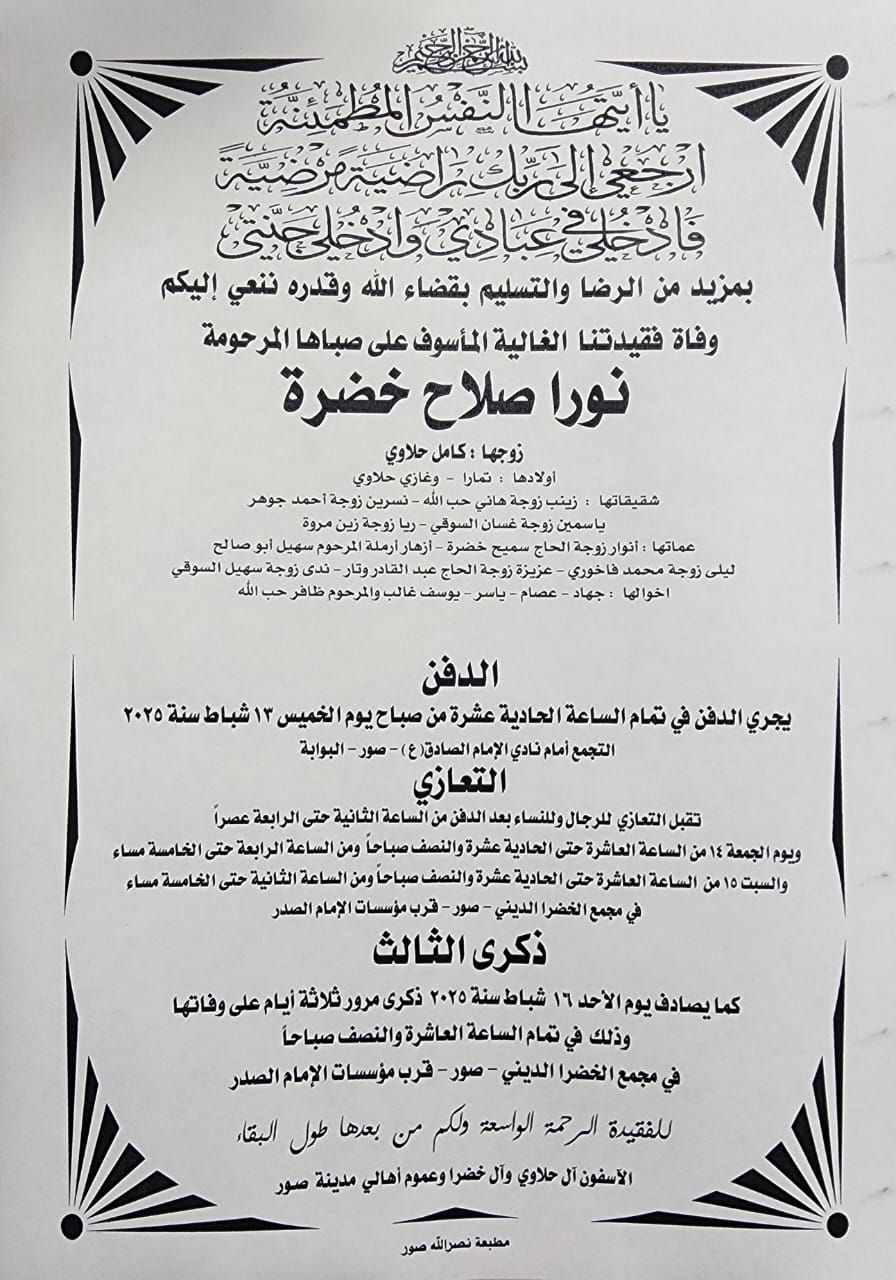 بسم الله الرحمن الرحيم
يا أيتها النفس المطمئنة
ارجعي إلى ربك راضية مرضية
فادخلي في عبادي وادخلي جنتي
بمزيد من الرضا والتسليم بقضاء الله وقدره ننعي إليكم
وفاة فقيدتنا الغالية المأسوف على صباها المرحومة
نورا صلاح خضرة
زوجها : كامل حلاوي
أولادها : تمارا - وغازي حلاوي
شقيقاتها : زينب زوجة هاني حب الله - نسرين زوجة أحمد جوهر
ياسمين زوجة غسان السوقي - ريا زوجة زين مروة
عماتها : أنوار زوجة الحاج سميح خضرة - أزهار أرملة المرحوم سهيل أبو صالح
ليلى زوجة محمد فاخوري - عزيزة زوجة الحاج عبد القادر وتار - ندى زوجة سهيل السوقي
اخوالها : جهاد - عصام - ياسر - يوسف غالب والمرحوم ظافر حب الله
الدفن
يجري الدفن في تمام الساعة الحادية عشرة من صباح يوم الخميس ١٣ شباط سنة ٢٠٢٥
التجمع أمام نادي الإمام الصادق(ع) - صور - البوابة
التعازي
تقبل التعازي للرجال وللنساء بعد الدفن من الساعة الثانية حتى الرابعة عصراً
ويوم الجمعة ١٤ من الساعة العاشرة حتى الحادية عشرة والنصف صباحاً ومن الساعة الرابعة حتى الخامسة مساء
والسبت ١٥ من الساعة العاشرة حتى الحادية عشرة والنصف صباحاً ومن الساعة الثانية حتى الخامسة مساء
في مجمع الخضرا الديني - صور - قرب مؤسسات الإمام الصدر
ذكرى الثالث
كما يصادف يوم الأحد ١٦ شباط سنة ٢٠٢٥ ذكرى مرور ثلاثة أيام على وفاتها
وذلك في تمام الساعة العاشرة والنصف صباحاً
في مجمع الخضرا الديني - صور - قرب مؤسسات الإمام الصدر
للفقيدة الرحمة الواسعة ولكم من بعدها طول البقاء
الآسفون آل حلاوي وآل خضرا وعموم أهالي مدينة صور
مطبعة نصرالله صور